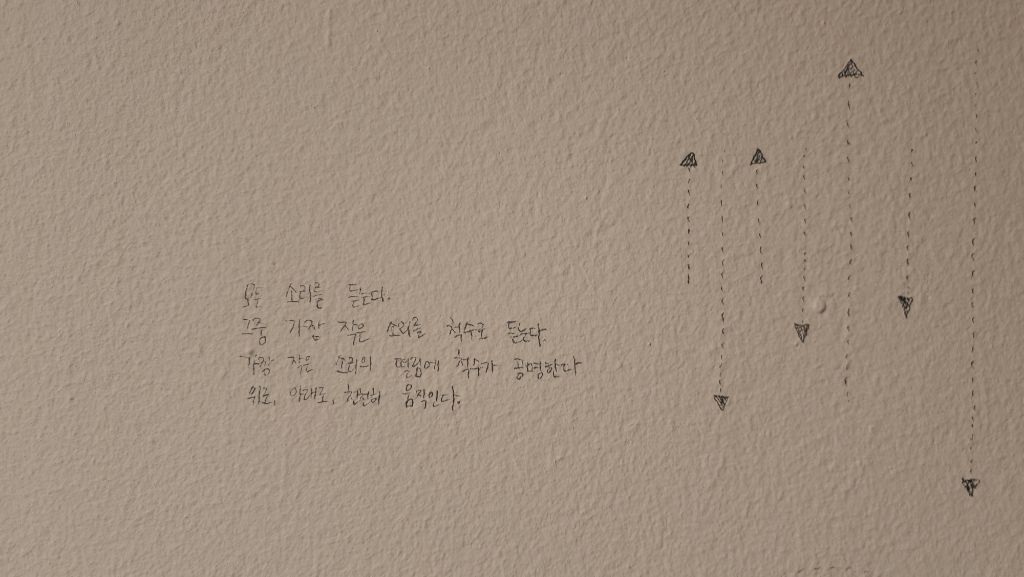 모든 소리를 듣는다.
그중 가장 작은 소리를 척수로 듣는다.
가장 작은 소리의 떨림에 척수가 공명한다
위로, 아래로, 천천히 움직인다.